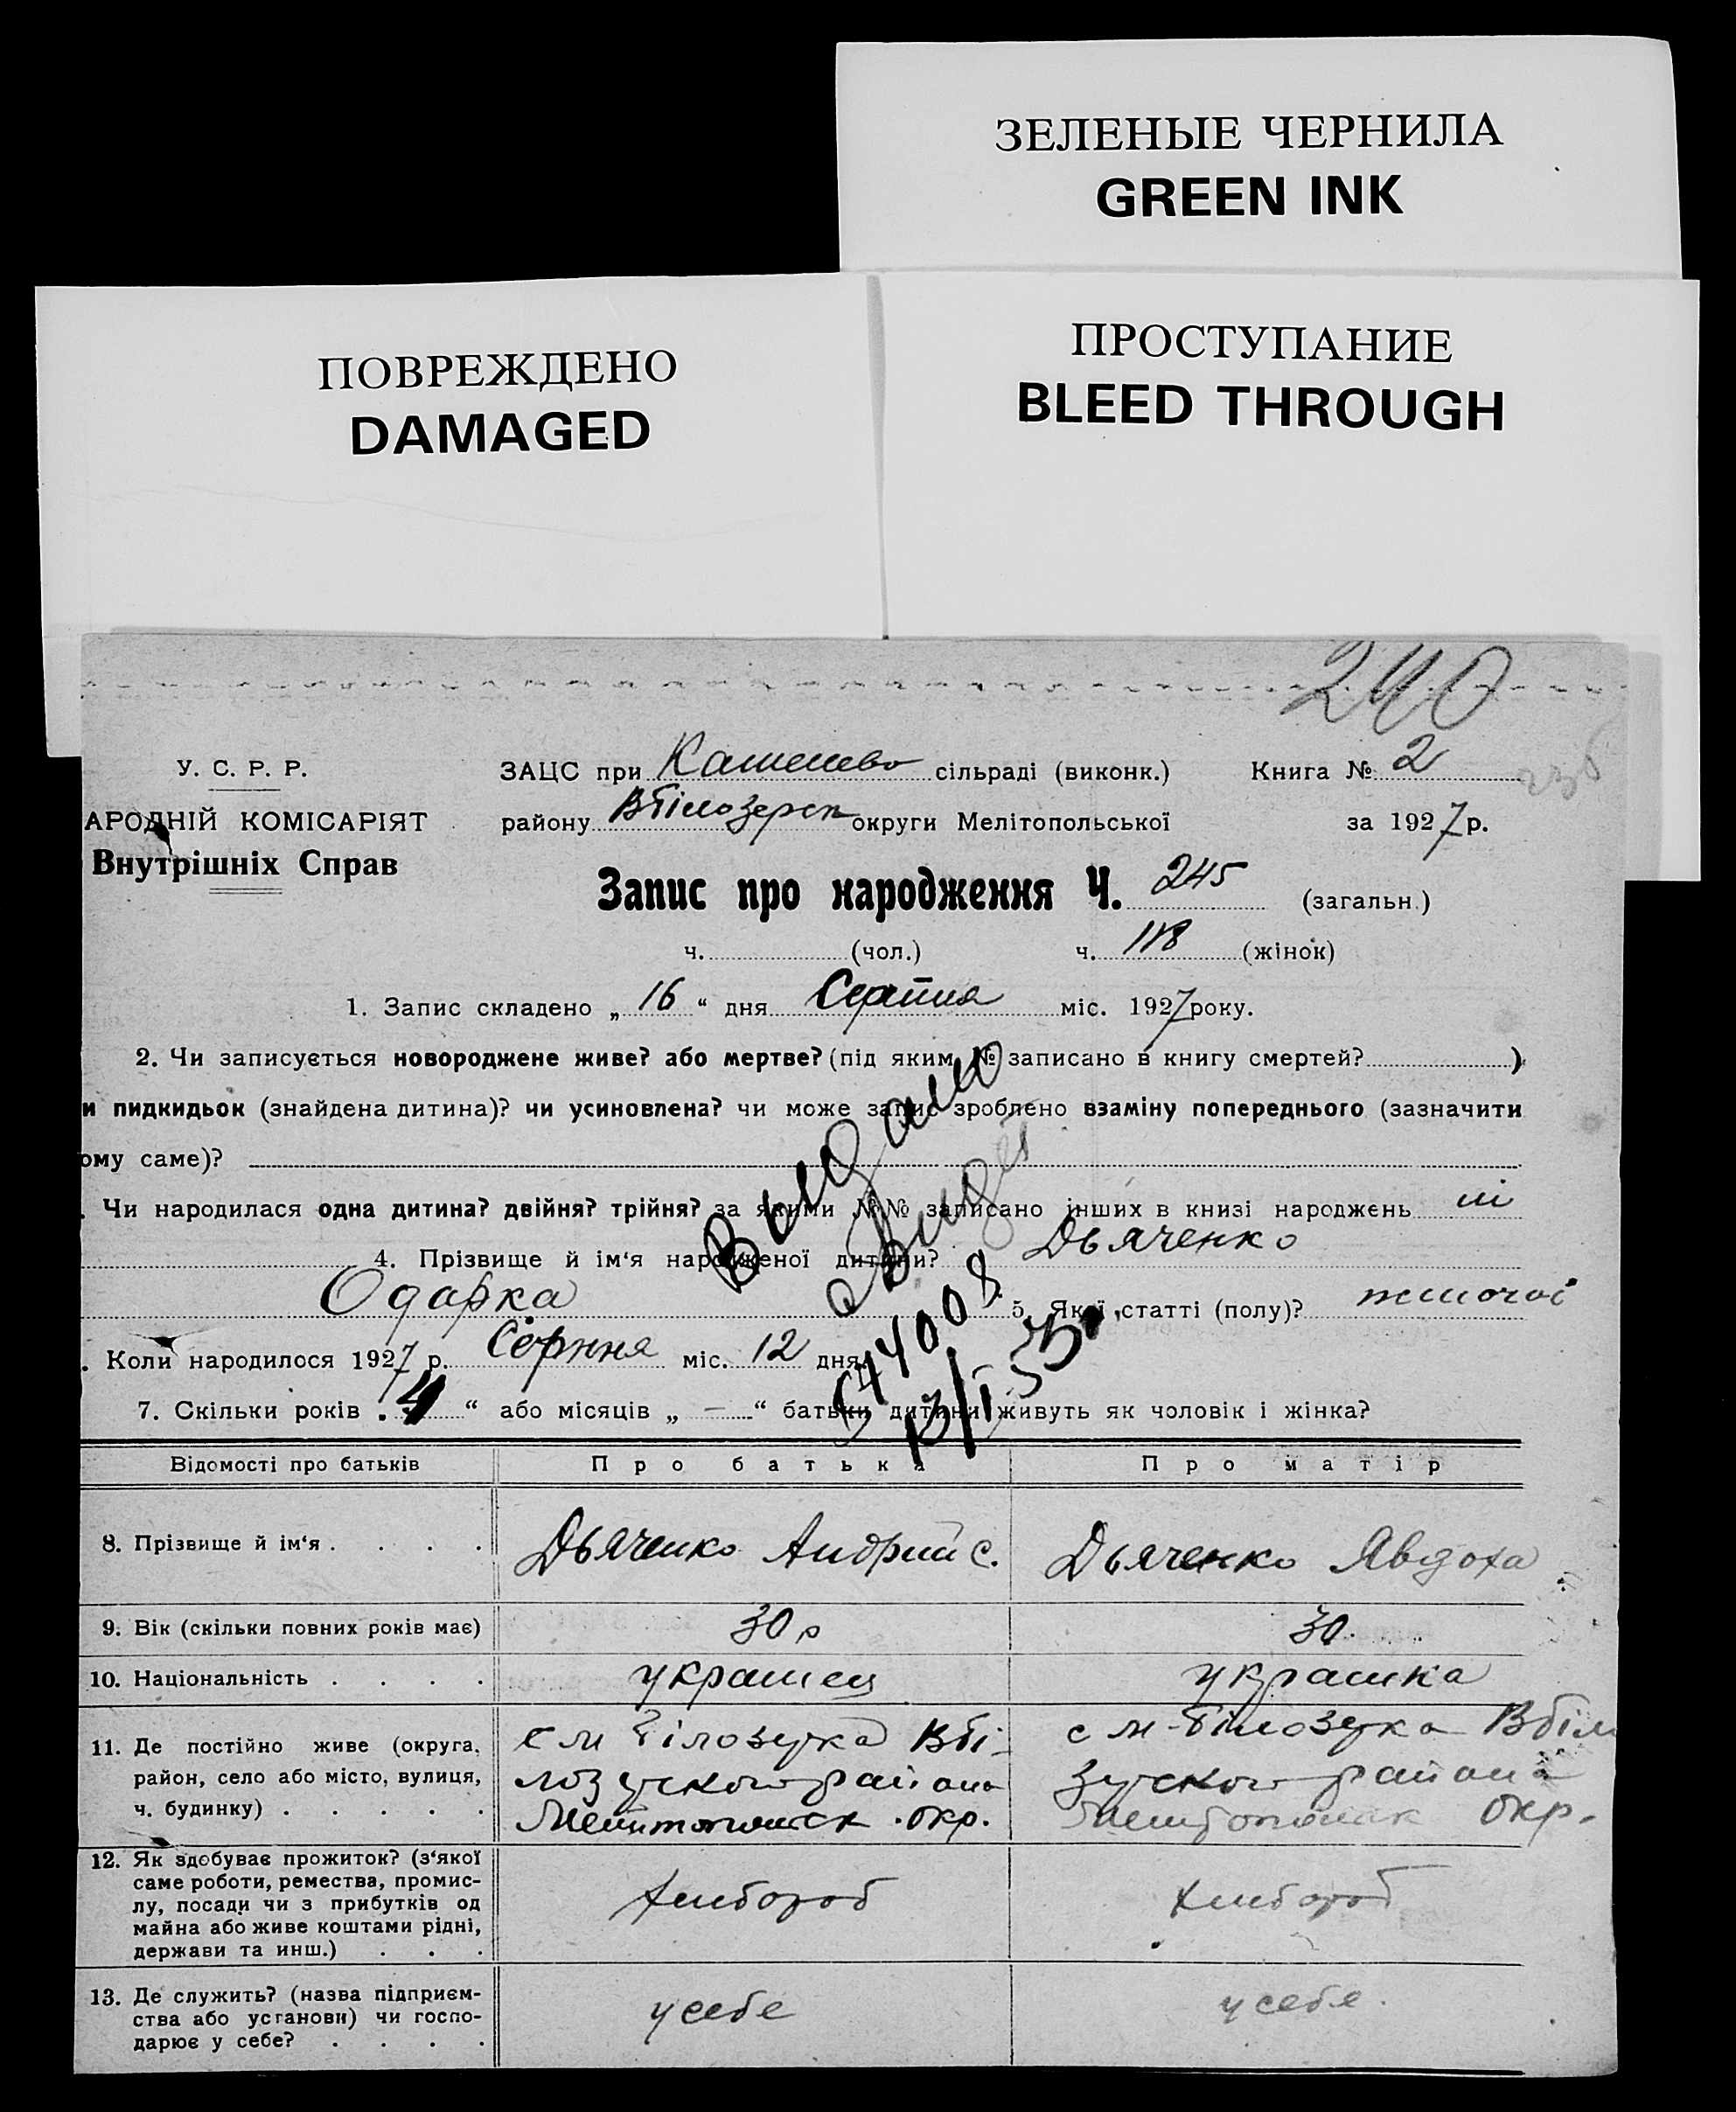 ЗЕЛЕНЫЕ ЧЕРНИЛА
GREEN INK
ПОВРЕЖДЕНО
DAMAGED
ПРОСТУПАНИЕ
BLEED THROUGH
240
У. С. Р. Р.
АРОДНІЙ КОМІСАРІЯТ
Внутрішніх Справ
ЗАЦС при сільраді (виконк.) Книга № 2
району ВБілозерск округи Мелітопольської за 1927 р.
Запис про народження Ч. 245 (загальн.)
ч. (чол.) ч. 118 (жінок)
1. Запис складено „ 16 “ дня Серпня міс. 1927 року.
2. Чи записується новороджене живе? або мертве? (під яким № записано в книгу смертей? )
и пидкидьок (знайдена дитина)? чи усиновлена? чи може запис зроблено взаміну попереднього (зазначити
ому саме)?
. Чи народилася одна дитина? двійня? трійня? за якими №№ записано інших в книзі народжень ні
4. Прізвище й ім‘я народженої дитини? Дьяченко
Одарка 5. Якої статті (полу)? жіночої
. Коли народилося 1927 р. Серпня міс. 12 дня
7. Скільки років „ 4 “ або місяців „ — “ батьки дитини живуть як чоловік і жінка?
Выдано
Відомості про батьків Про батька Про матір
8. Прізвище й ім‘я . . . . Дьяченко Андрий С. Дьяченко Явдоха
9. Вік (скільки повних років має) 30 р 30.
10. Національність . . . . украинец украинка
11. Де постійно живе (округа,
район, село або місто, вулиця,
ч. будинку) . . . . .
с М Білозерка ВБі-
лозерского района
Мелитопольск. окр.
с М-Білозерка ВБіло
зерского района
Мелитопольск окр.
12. Як здобуває прожиток? (з‘якої
саме роботи, ремества, промис-
лу, посади чи з прибутків од
майна або живе коштами рідні,
держави та инш.) . . .
хлібороб хлібороб
13. Де служить? (назва підприєм-
ства або установи) чи госпо-
дарює у себе? . . . .
у себе у себе.